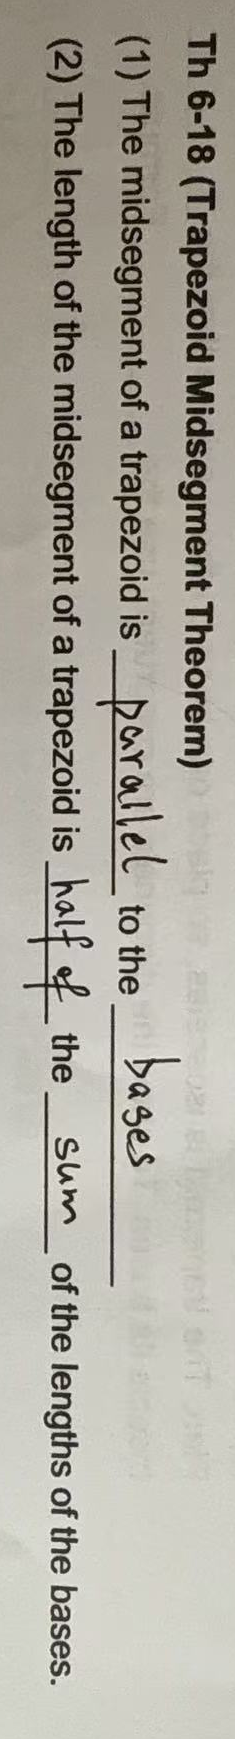 Th 6-18 (Trapezoid Midsegment Theorem)
(1) The midsegment of a trapezoid is parallel to the bases
(2) The length of the midsegment of a trapezoid is half of the sum of the lengths of the bases.